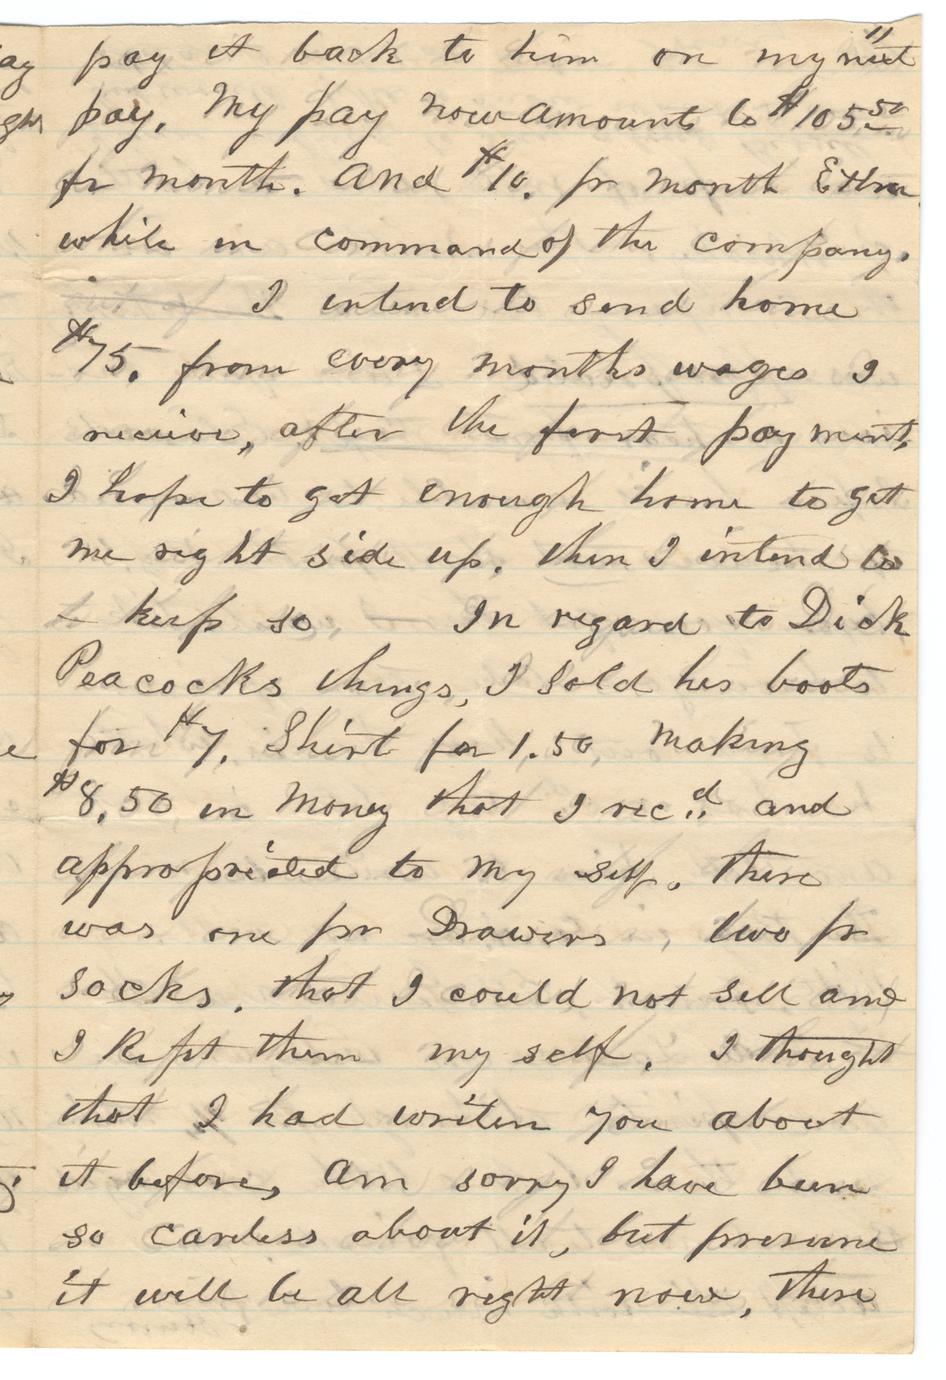 pay it back to him on my next
pay. My pay now amounts to $105 50
pr month. And $10. pr month Extra
while in command of the company.
I intend to send home
$75. from every months wages I
recieve, after the first payment,
I hope to get enough home to get
me right side up. then I intend to
keep so. — In regard to Dick
Peacocks things, I sold his boots
for $7. Shirt for 1.50, making
$8,50 in Money that I recd. and
appropriated to my self. there
was one pr Drawers, two pr
socks. that I could not sell and
I Kept them my self. I thought
that I had writen you about
it before, Am sorry I have been
so careless about it, but presume
it will be all right now, there